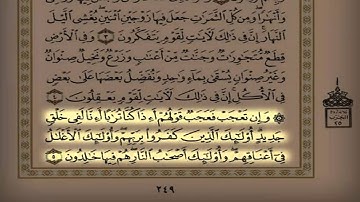 وَأَنْهَٰرًا ۖ وَمِن كُلِّ ٱلثَّمَرَٰتِ جَعَلَ فِيهَا زَوْجَيْنِ ٱثْنَيْنِ ۖ يُغْشِى ٱلَّيْلَ
ٱلنَّهَارَ ۚ إِنَّ فِى ذَٰلِكَ لَءَايَٰتٍ لِّقَوْمٍ يَتَفَكَّرُونَ ٣ وَفِى ٱلْأَرْضِ
قِطَعٌ مُّتَجَٰوِرَٰتٌ وَجَنَّٰتٌ مِّنْ أَعْنَٰبٍ وَزَرْعٌ وَنَخِيلٌ صِنْوَانٌ
وَغَيْرُ صِنْوَانٍ يُسْقَىٰ بِمَآءٍ وَٰحِدٍ وَنُفَضِّلُ بَعْضَهَا عَلَىٰ بَعْضٍ
فِى ٱلْأُكُلِ ۚ إِنَّ فِى ذَٰلِكَ لَءَايَٰتٍ لِّقَوْمٍ يَعْقِلُونَ ٤
۞ وَإِن تَعْجَبْ فَعَجَبٌ قَوْلُهُمْ أَءِذَا كُنَّا تُرَٰبًا أَءِنَّا لَفِى خَلْقٍ
جَدِيدٍ ۗ أُو۟لَٰٓئِكَ ٱلَّذِينَ كَفَرُوا۟ بِرَبِّهِمْ ۖ وَأُو۟لَٰٓئِكَ ٱلْأَغْلَٰلُ
فِىٓ أَعْنَاقِهِمْ ۖ وَأُو۟لَٰٓئِكَ أَصْحَٰبُ ٱلنَّارِ ۖ هُمْ فِيهَا خَٰلِدُونَ ٥
٢٤٩